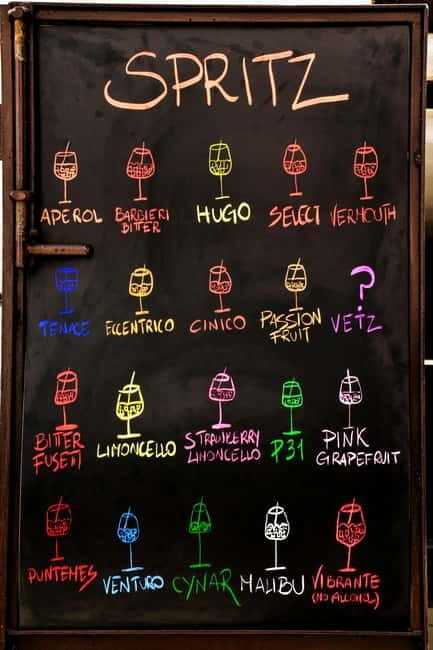 SPRITZ
APEROL BARBIERI BITTER HUGO SELECT VERMOUTH
TENACE ECCENTRICO CINICO PASSION FRUIT ? VETZ
BITTER FUSETTI LIMONCELLO STRAWBERRY LIMONCELLO P31 PINK GRAPEFRUIT
PUNTEMES VENTURO CYNAR MALIBU VIBRANTE (NO ALCOHOL)